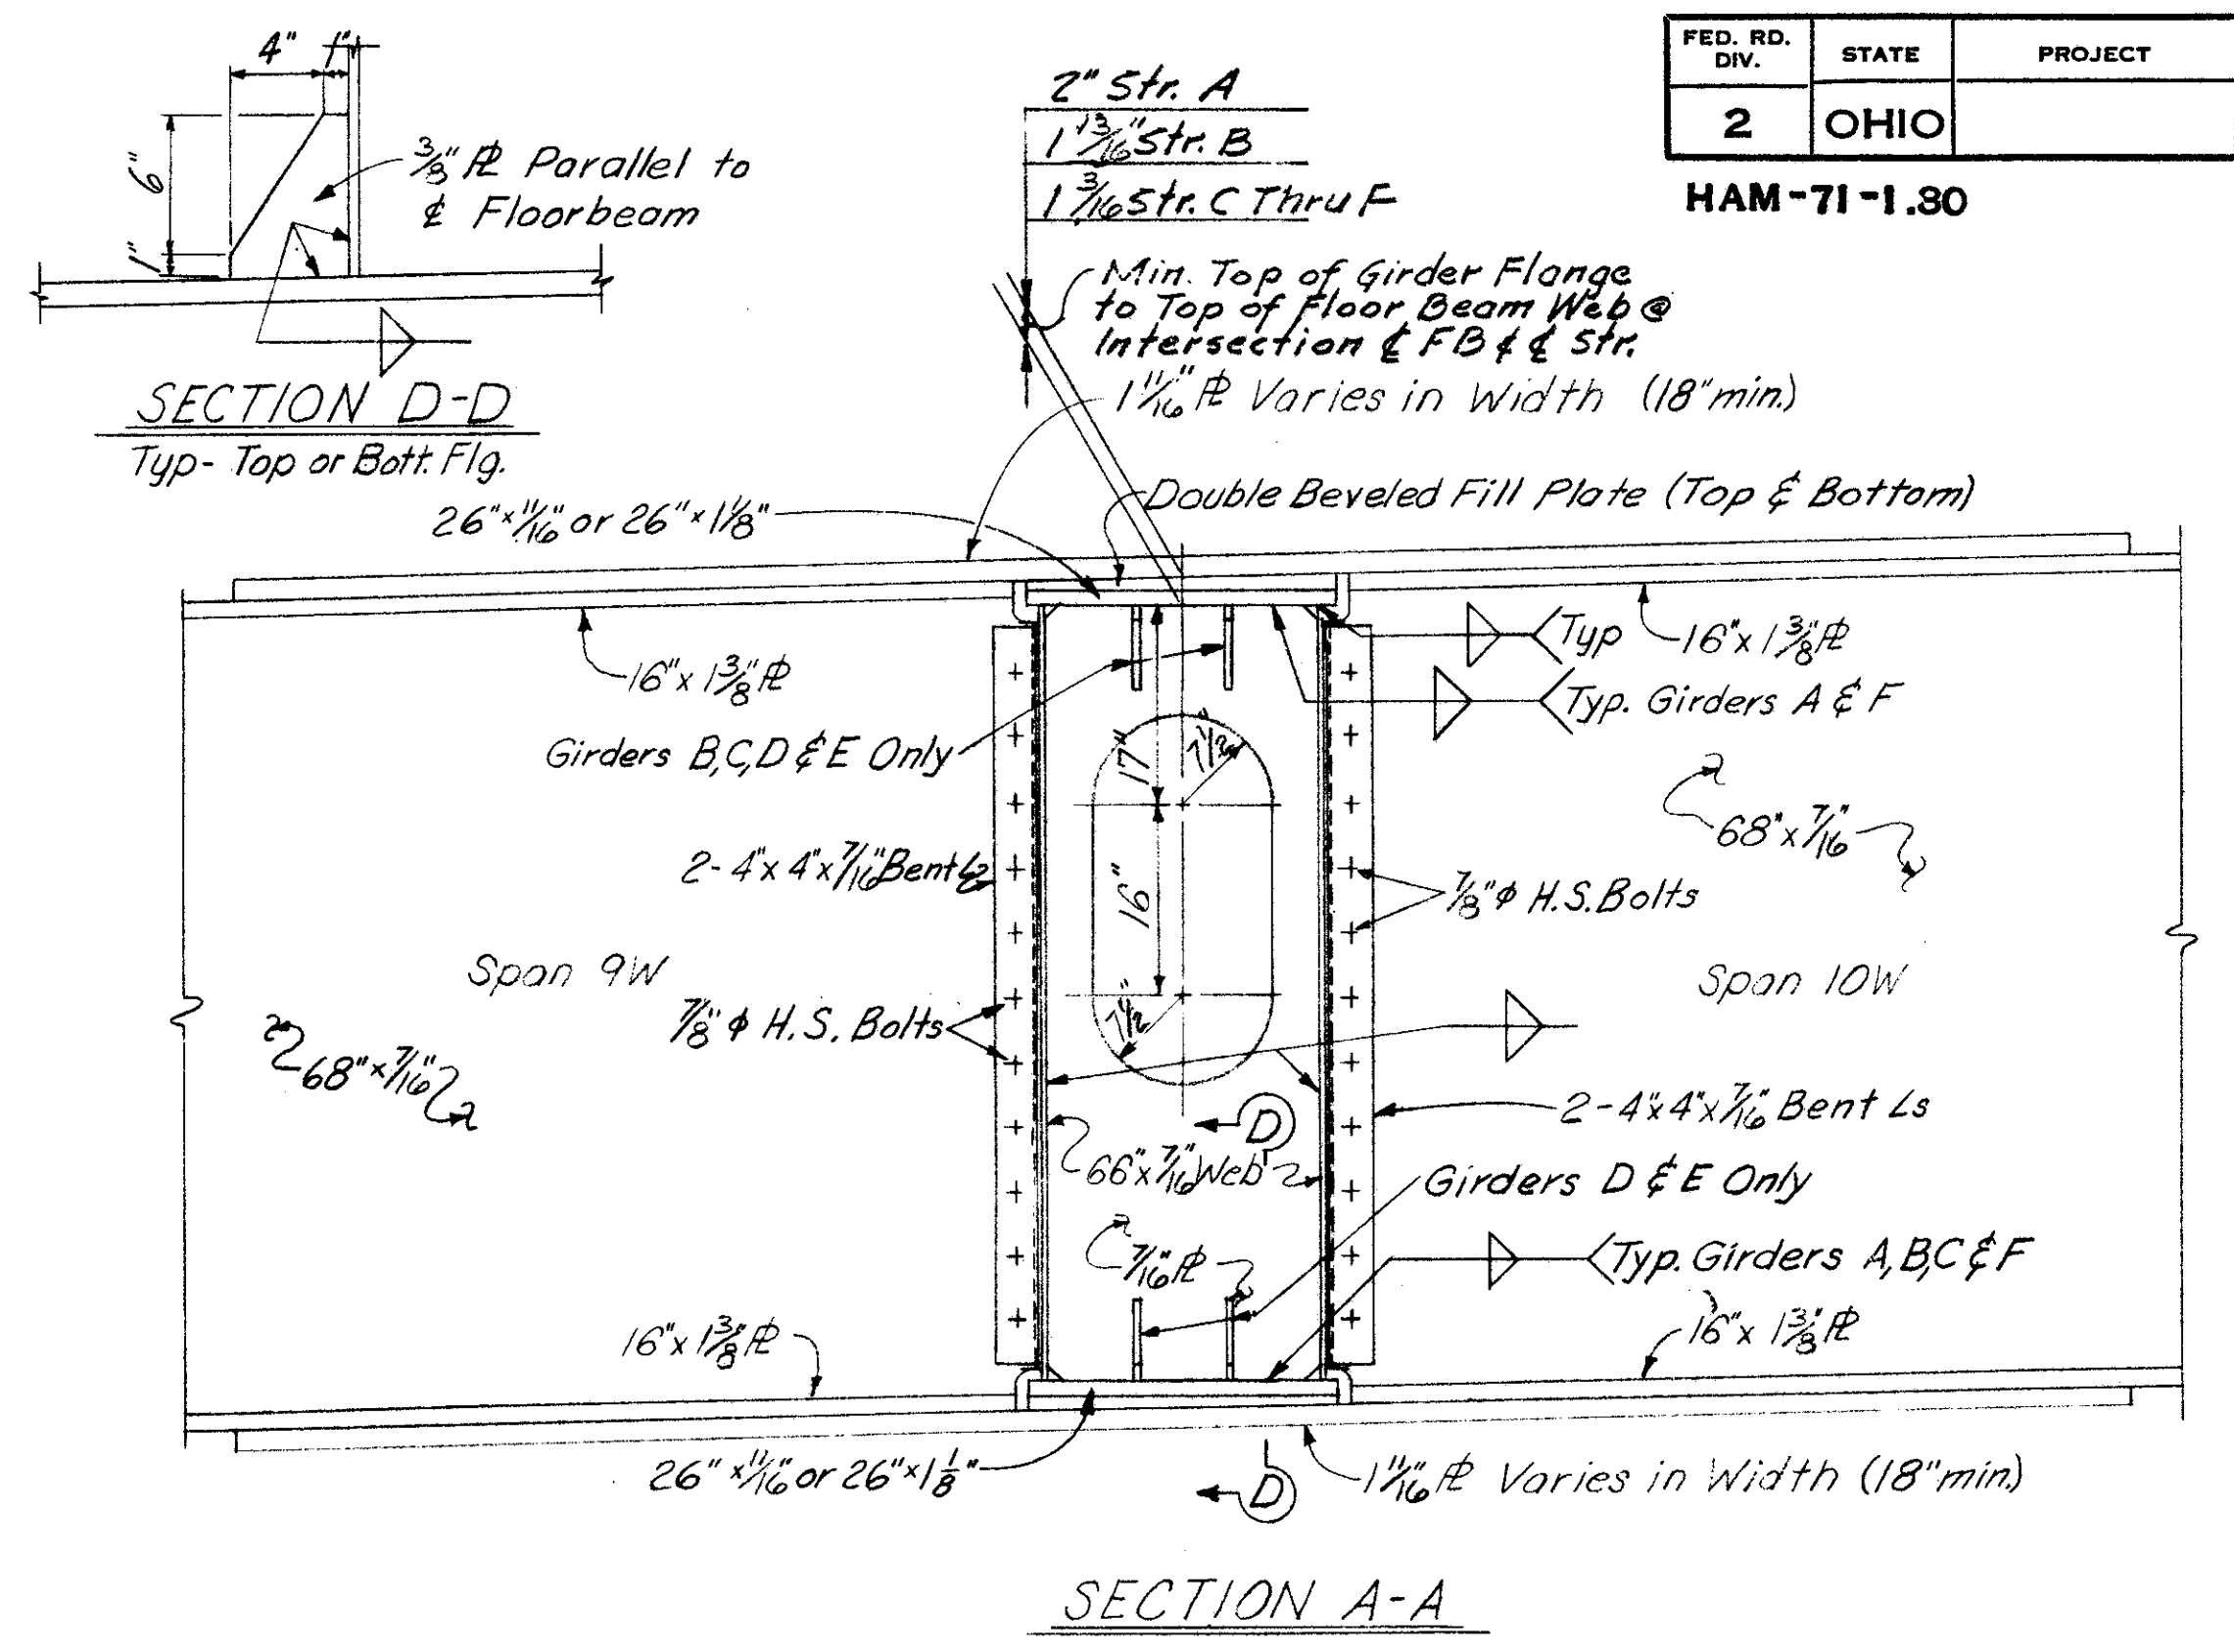 FED. RD.
DIV.
STATE
PROJECT
2
OHIO
HAM-71-1.30
4"
1"
6"
1"
3/8" ⅊ Parallel to
℄ Floorbeam
SECTION D-D
Typ- Top or Bott. Flg.
2" Str. A
1 13/16" Str. B
1 3/16 Str. C Thru F
Min. Top of Girder Flange
to Top of Floor Beam Web @
Intersection ℄ FB & ℄ Str.
1 11/16" ⅊ Varies in Width (18" min.)
Double Beveled Fill Plate (Top & Bottom)
26" x 11/16" or 26" x 1 1/8"
16" x 1 3/8" ⅊
Typ
16" x 1 3/8" ⅊
Typ. Girders A & F
Girders B,C,D & E Only
17"
7 1/2"
68" x 7/16"
2-4" x 4" x 7/16" Bent Ls
16"
7/8" φ H.S. Bolts
Span 9W
Span 10W
7/8" φ H.S. Bolts
7 1/2"
68" x 7/16"
2-4" x 4" x 7/16" Bent Ls
D
66" x 7/16" Web
Girders D & E Only
7/16" ⅊
Typ. Girders A,B,C & F
16" x 1 3/8" ⅊
16" x 1 3/8" ⅊
26" x 11/16" or 26" x 1 1/8"
D
1 11/16" ⅊ Varies in Width (18" min.)
SECTION A-A